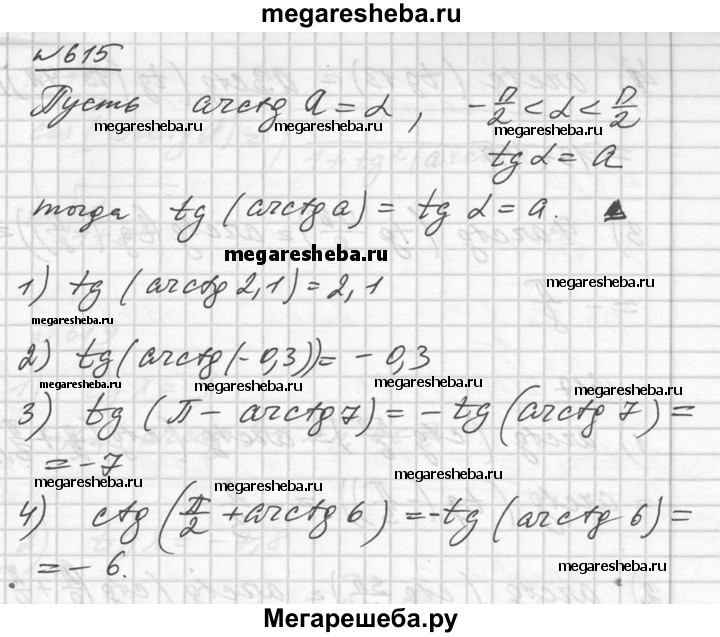 megaresheba.ru
№615
Пусть arctg a = α, -π/2 < α < π/2
megaresheba.ru megaresheba.ru megaresheba.ru
tg α = a
тогда tg (arctg a) = tg α = a.
megaresheba.ru
1) tg (arctg 2,1) = 2,1
megaresheba.ru
megaresheba.ru megaresheba.ru
2) tg(arctg(-0,3)) = -0,3
megaresheba.ru megaresheba.ru megaresheba.ru megaresheba.ru
3) tg (π - arctg 7) = -tg (arctg 7) =
= -7
megaresheba.ru megaresheba.ru megaresheba.ru
4) ctg (π/2 + arctg 6) = -tg (arctg 6) =
= -6.
megaresheba.ru
Мегарешеба.ру